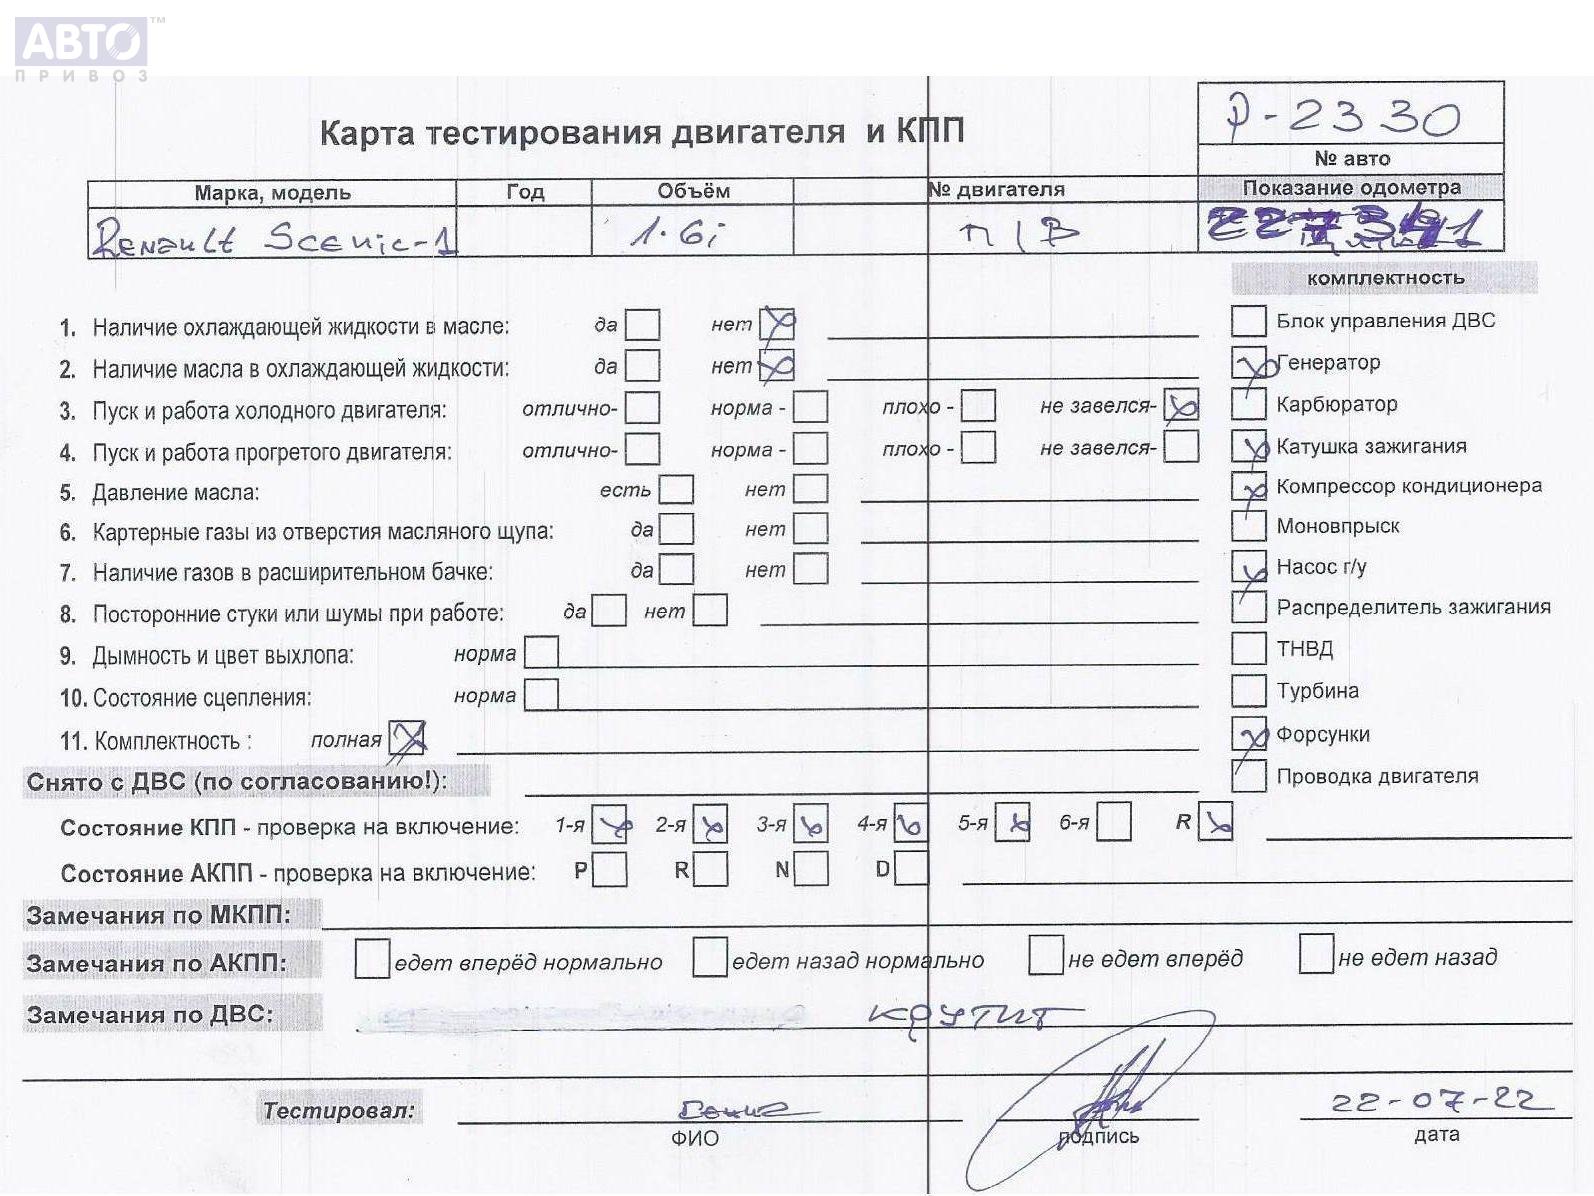 АВТО™
ПРИВОЗ
Р-2330
Карта тестирования двигателя и КПП
№ авто
Марка, модель Год Объём № двигателя Показание одометра
Renault Scenic-1 1.6i п/в
комплектность
1. Наличие охлаждающей жидкости в масле: да нет
Блок управления ДВС
2. Наличие масла в охлаждающей жидкости: да нет
Генератор
3. Пуск и работа холодного двигателя: отлично- норма - плохо - не завелся-
Карбюратор
4. Пуск и работа прогретого двигателя: отлично- норма - плохо - не завелся-
Катушка зажигания
5. Давление масла: есть нет
Компрессор кондиционера
6. Картерные газы из отверстия масляного щупа: да нет
Моновпрыск
7. Наличие газов в расширительном бачке: да нет
Насос г/у
8. Посторонние стуки или шумы при работе: да нет
Распределитель зажигания
9. Дымность и цвет выхлопа: норма
ТНВД
10. Состояние сцепления: норма
Турбина
11. Комплектность : полная
Форсунки
Снято с ДВС (по согласованию!):
Проводка двигателя
Состояние КПП - проверка на включение: 1-я 2-я 3-я 4-я 5-я 6-я R
Состояние АКПП - проверка на включение: P R N D
Замечания по МКПП:
Замечания по АКПП: едет вперёд нормально едет назад нормально не едет вперёд не едет назад
Замечания по ДВС: крутит
Тестировал: 22-07-22
ФИО подпись дата